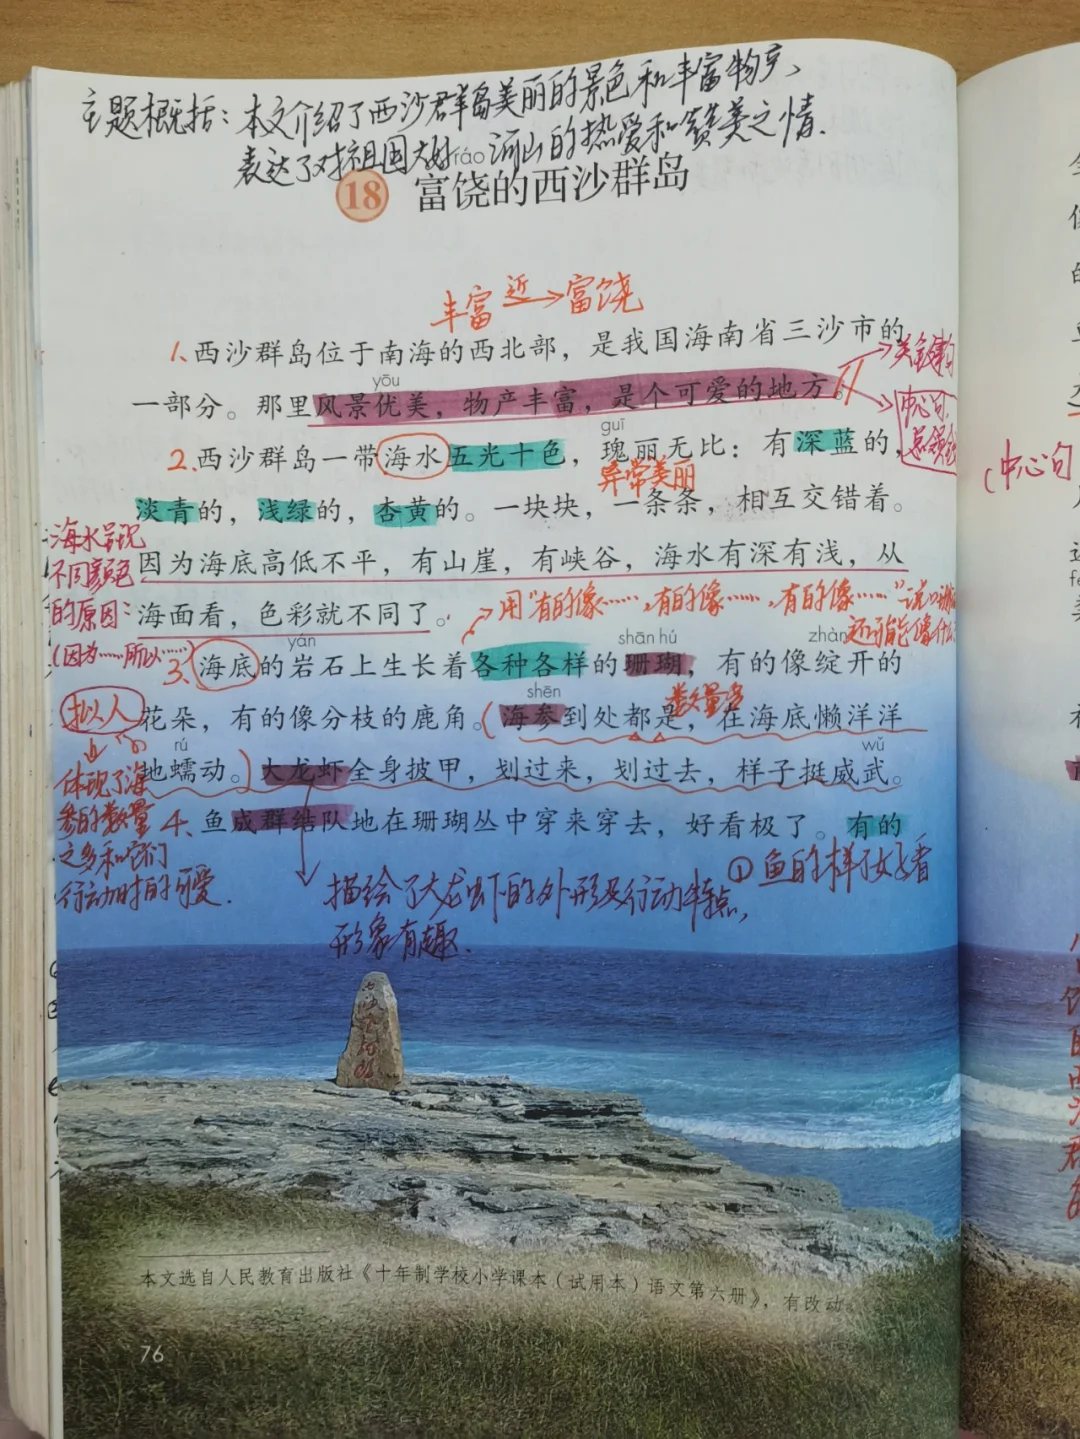 主题概括：本文介绍了西沙群岛美丽的景色和丰富物产、
表达了对祖国大好河山的热爱和赞美之情.
ráo
18 富饶的西沙群岛
丰富 近→ 富饶
1、西沙群岛位于南海的西北部，是我国海南省三沙市的
关键句
yōu
一部分。那里风景优美，物产丰富，是个可爱的地方。
中心句.
guī
2.西沙群岛一带海水五光十色，瑰丽无比：有深蓝的，
异常美丽
(中心句
淡青的，浅绿的，杏黄的。一块块，一条条，相互交错着。
海水呈现
不同颜色
的原因：
(因为……所以……)
因为海底高低不平，有山崖，有峡谷，海水有深有浅，从
海面看，色彩就不同了。
用“有的像……，有的像……，有的像……”说
还可能像什么
yán shān hú zhàn
3、海底的岩石上生长着各种各样的珊瑚，有的像绽开的
shēn
数量多
拟人
花朵，有的像分枝的鹿角。(海参到处都是，在海底懒洋洋
rú wǔ
地蠕动。)大龙虾全身披甲，划过来，划过去，样子挺威武。
体现了海
参的数量
之多和它们
行动时的可爱.
4、鱼成群结队地在珊瑚丛中穿来穿去，好看极了。有的
①鱼的样子好看
描绘了大龙虾的外形及行动特点，
形象有趣.
本文选自人民教育出版社《十年制学校小学课本（试用本）语文第六册》，有改动
76